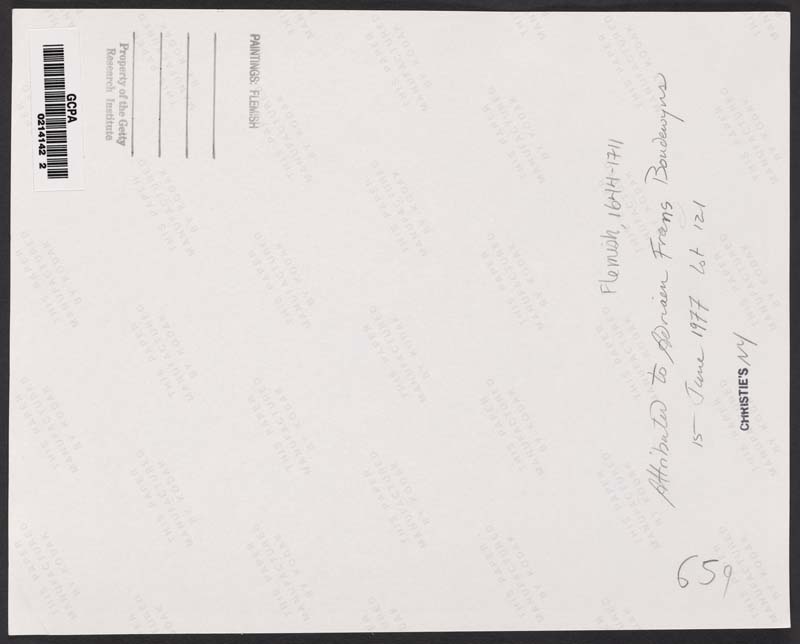 GCPA
0214142 2
Property of the Getty
Research Institute
PAINTINGS: FLEMISH
Flemish, 1644-1711
Attributed to Adriaen Frans Boudewyns
15 June 1977 Lot 121
CHRISTIE'S NY
659
THIS PAPER
MANUFACTURED
BY KODAK